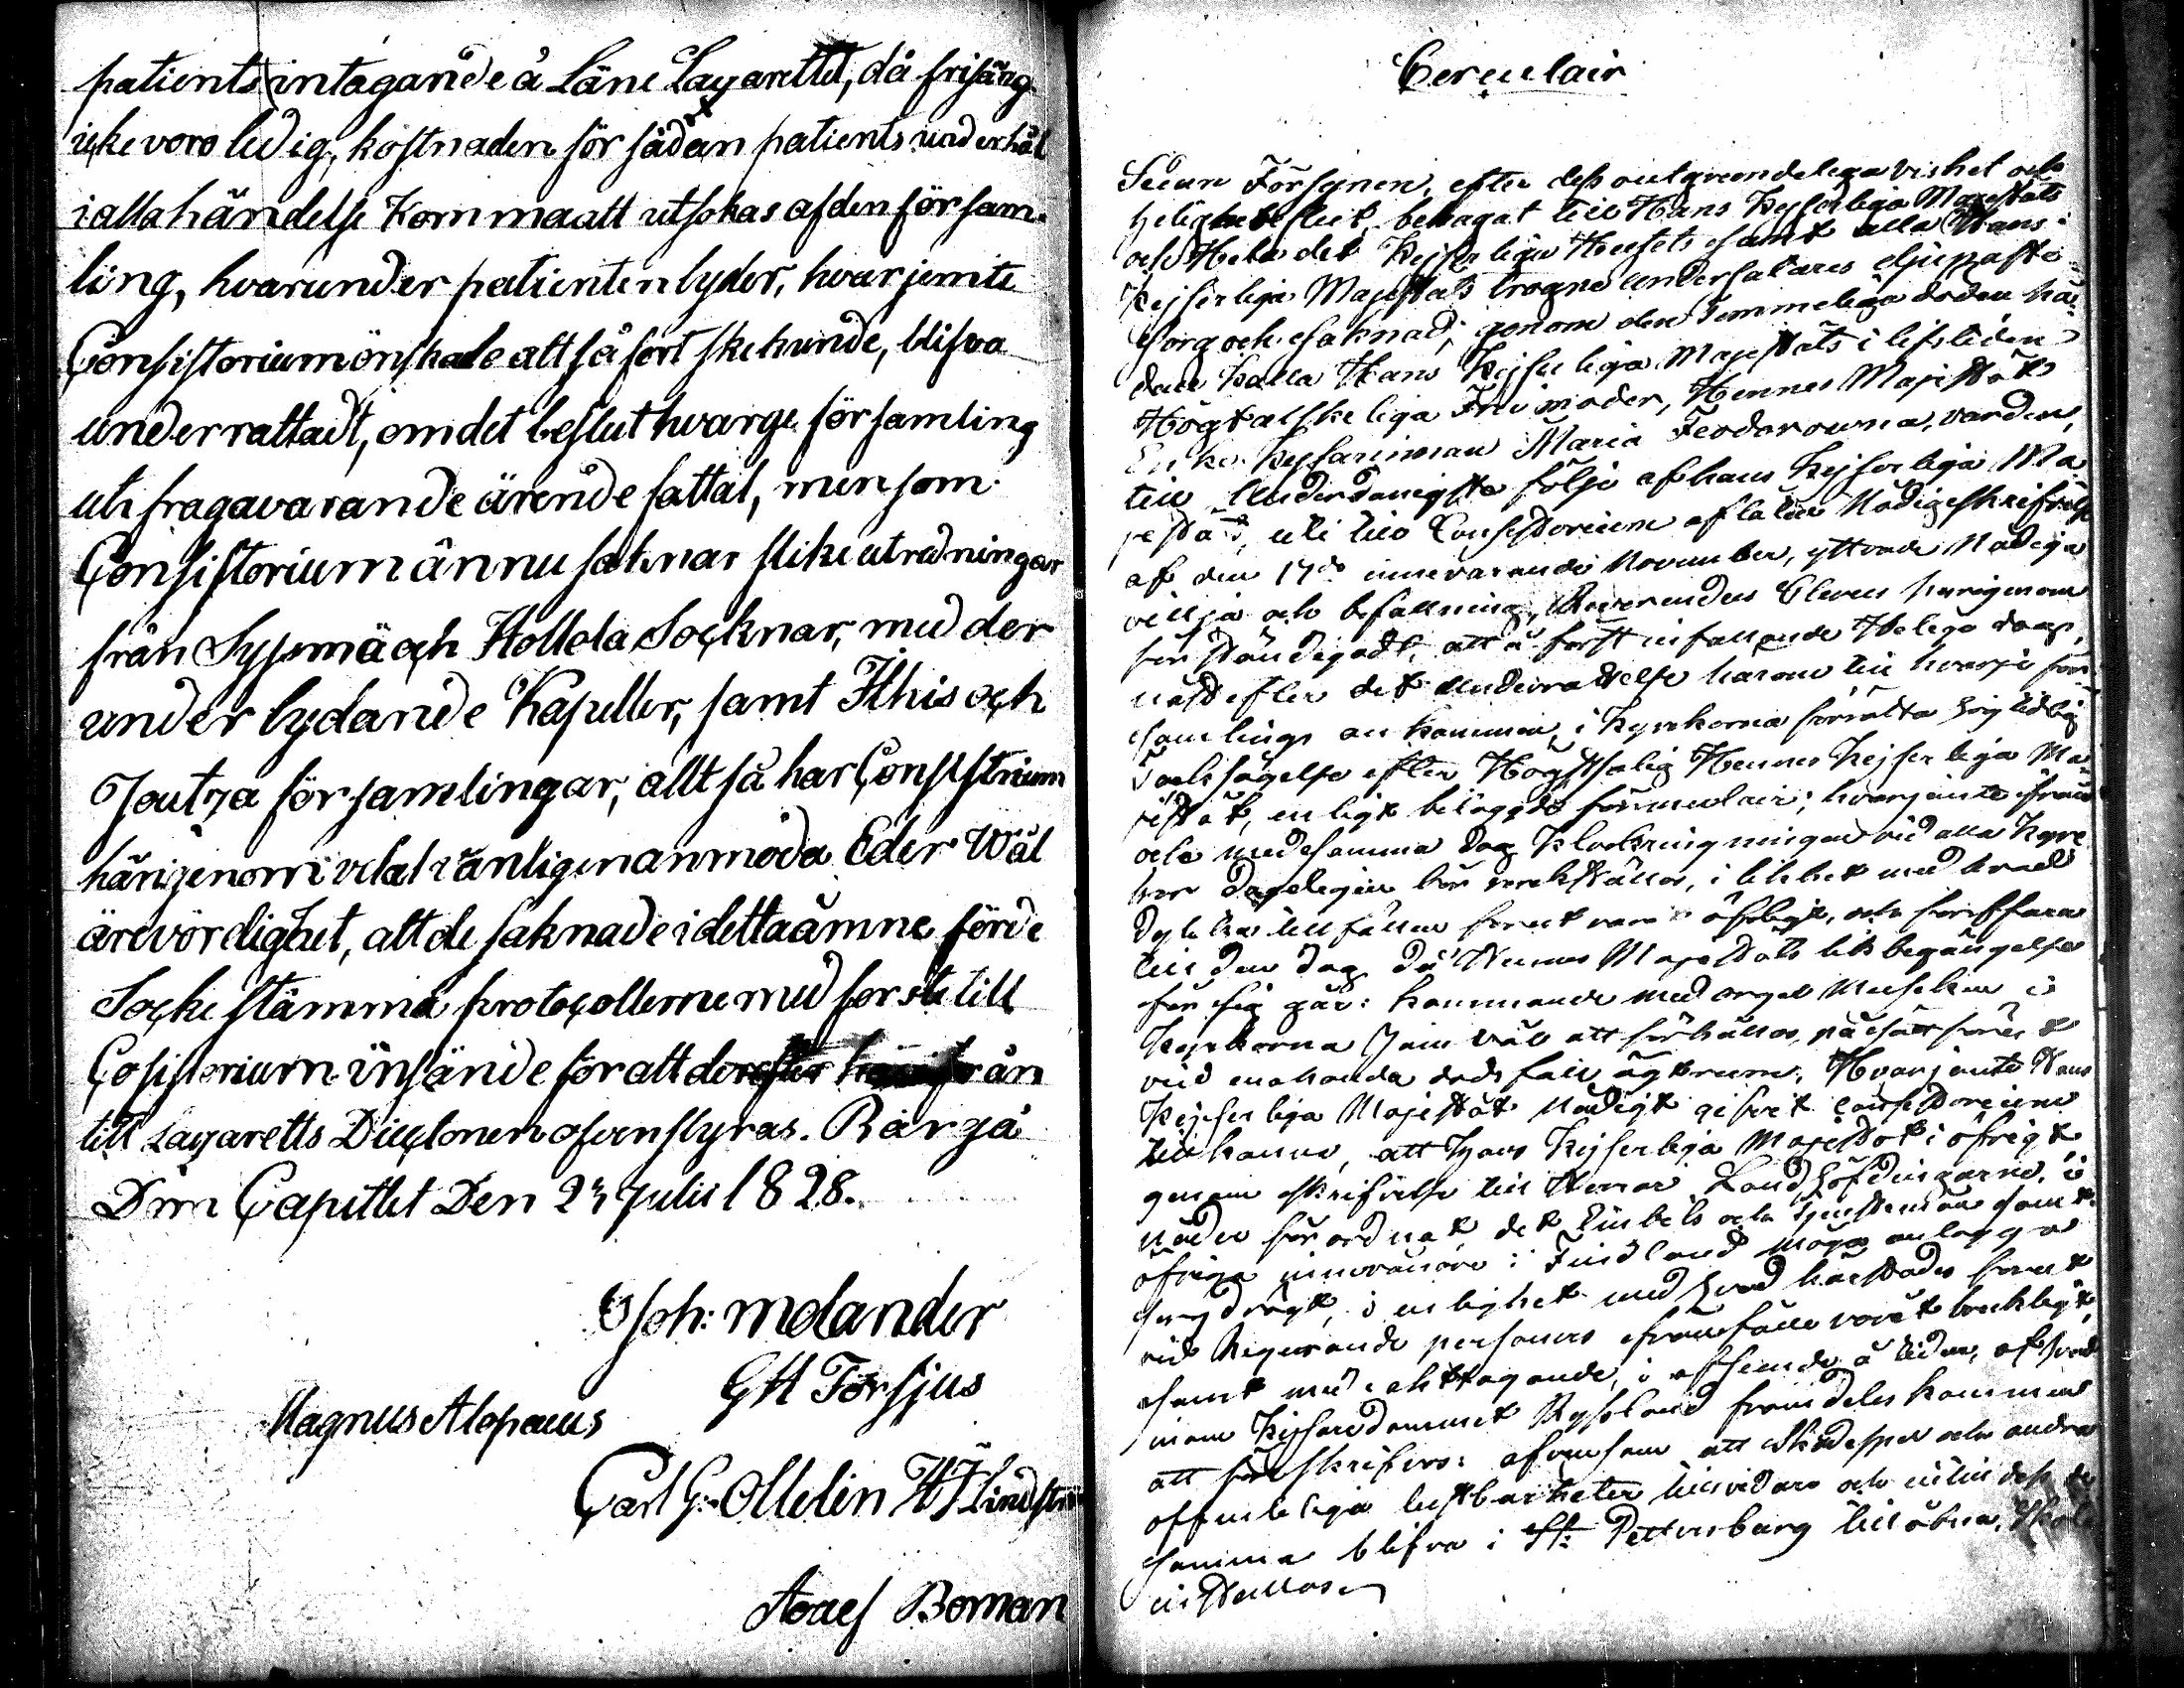 patients intagande å Läne Lazarettet, då frisäng
icke voro ledig, kostnaden för sådan patients underhål
i alla händelse Komma att utsökas af den försam-
ling, hvarunder patienten lyder, hvarjemte
Consistorium önskade att så fort ske kunde, blifva
underrattadt, om det beslut hvarge församling
uti fragavarande ärende fattat, men som
Consistorium ännu saknar slike utredningar
från Sysmä och Hollola Socknar, med der
under lydande Kapeller, samt Ithis och
Joutza församlingar, allt så har Consistorium
härigenom velat vänligen anmoda Eder Wäl
ärevördighet, att de saknade i detta ämne förde
Socke stämma protocollerne med forste till
Cosistorium insände för att derefter härifrån
till Lazaretts Direction öfverstyras. Bårgå
Dom Capitlet Den 23 Julii 1828.
Joh: Molander
G H Forsjus
Magnus Alopæus
Carl G: Ottelin H J Lindström
Boman
Cerculair
Sedan Försynen, efter dess outgrundeliga vishet och
helighet beslut, behagat till Hans Kejserliga Majestäts
och Hela det Kejserliga Husets samt alla Hans
Kejserliga Majestäts trogne Undersåtares djupaste
sorg och saknad, genom den Timmeliga döden hä-
dan kalla Hans Kejserliga Majestäts i lifstiden
Högtälskeliga Fru moder, Hennes Majestät
Enke Kejsarinnan Maria Feodorowna, varder,
till Underdånigste följe af hans Kejserliga Ma
jestäts, uti till Consistorium aflåten Nådige skrifvelse
af den 17de innevarande November, yttrade Nådiga
vilja och befallning, Reverendus Clerus härigenom
förständigadt, att å först infallande Helige dag,
näst efter det Underrättelse härom till hvarje för-
samlings ankommen, i Kyrkorna förrätta högtidlig
Tacksägelse efter Högstsalig Hennes Kejserliga Ma
jestät, enligt bilagde formulair; hvarjemte ifrån
och med samma dag klockringningen vid alla Kyrk
kor dageligen bör verkställas, i likhet med hvad
dylika tillfällen förut varit öfligt, och fortfara
till den dag då Hennes Majestäts likbegängelse
för sig går: kommande med orgel Musiken i
Kyrkorna Jäm väl att förhållas, på sätt förut
vid enahanda dödsfall ägt rum. Hvarjemte Hans
Kejserliga Majestät Nådigt gifvit Consistorium
tillkänna, att Hans Kejserliga Majestät i öfrigt
genom skrifvelse till Herrar Landshöfdingarne, i
nåder förordnat det Embets och tjenstemän samt
öfriga innevånare i Finland måga anlägga
sorgdrägt, i enlighet med hvad härstädes förut
vid Regerande personers frånfälle varit brukligt,
samt med iakttagande, i afseende å tiden, af hvad
inom Kejsaredömmet Ryssland framdeles kommer
att föreskrifvas: äfvensom att Skådespel och andra
offenteliga lustbarheter tillsvidare och intill dess de
samma blifva i St: Pettersburg tillåtna, skola
inställas